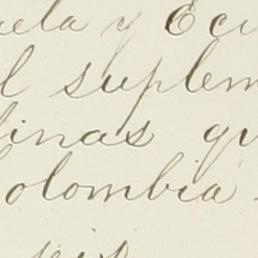 uela y Ecu
l suplem
linas qu
Colombia